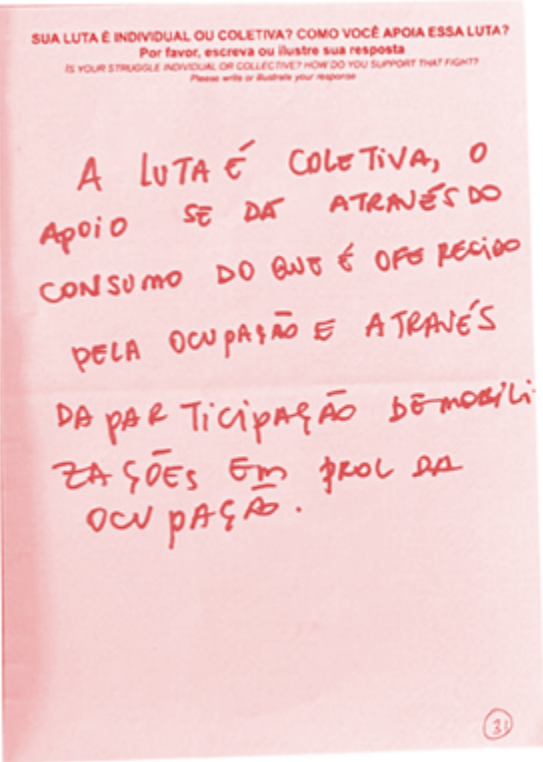 SUA LUTA É INDIVIDUAL OU COLETIVA? COMO VOCÊ APOIA ESSA LUTA?
Por favor, escreva ou ilustre sua resposta
IS YOUR STRUGGLE INDIVIDUAL OR COLLECTIVE? HOW DO YOU SUPPORT THAT FIGHT?
Please write or illustrate your response
A LUTA É COLETIVA, O
APOIO SE DÁ ATRAVÉS DO
CONSUMO DO QUE É OFERECIDO
PELA OCUPAÇÃO E ATRAVÉS
DA PARTICIPAÇÃO DE MOBILI-
ZAÇÕES EM PROL DA
OCUPAÇÃO.
31